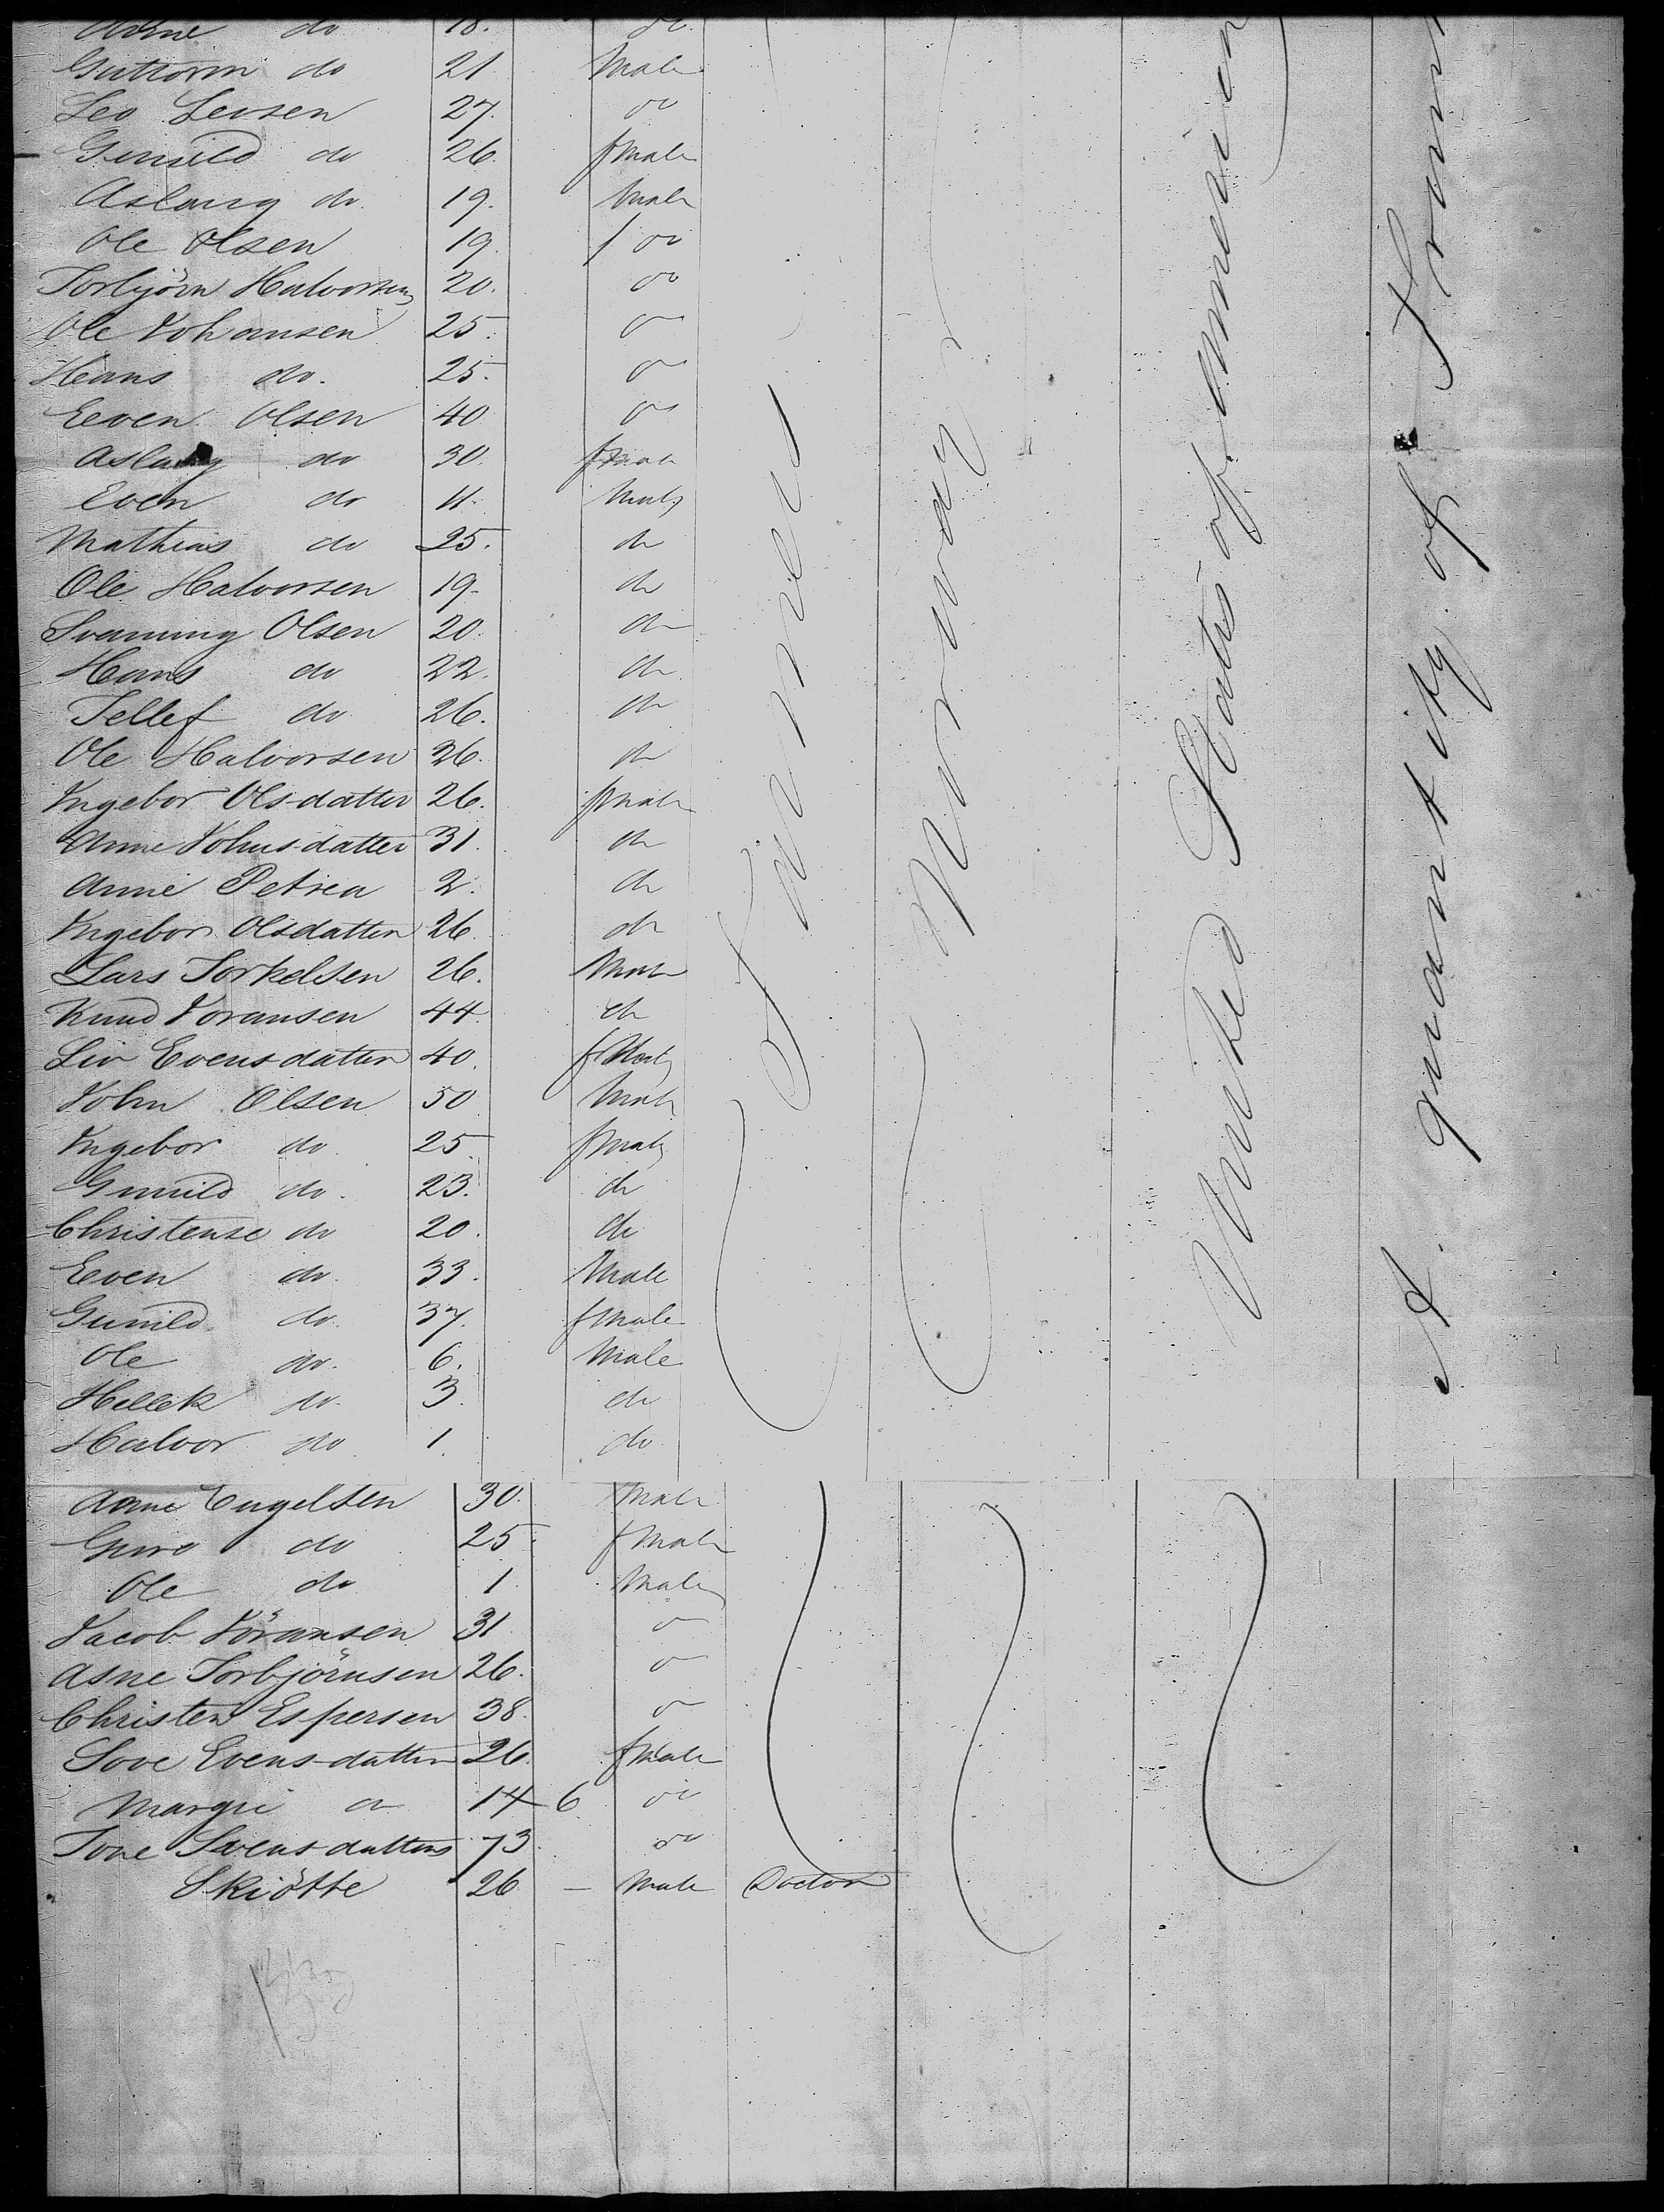 Anne do 18. do
Guttorm do 21 Male
Leo Leosen 27. do
Gunild do 26. fmale
Aslaug do. 19. Male
Ole Olsen 19. f do
Torbjörn Halvorsen 20. do
Ole Johansen 25. do
Hans do. 25. do
Eeven Olsen 40 do
Aslaug do 30. fmale
Even do 11. Male
Mathias do 25. do
Ole Halvorsen 19. do
Svanung Olsen 20. do
Hans do 22. do
Tellef do 26. do
Ole Halvorsen 36. do
Ingebor Olsdatter 26. fmale
Anne Johnsdatter 31. do
Anne Petrea 2. do
Ingebor Olsdatter 26. do
Lars Torkelsen 26. Male
Knud Joransen 44. do
Liv Evensdatter 40. fMale
John Olsen 50 Male
Ingebor do. 25. fmale
Gunild do. 23. do
Christense do 20. do
Eeven do. 33. Male
Gunild do. 37. fmale
Ole do. 6. Male
Hellek do. 3. do
Halvor do 1. do
Farmers
Norway
United States of America
A quantity of
Aanne Engelsen 30. Male
Guro do 25. fmale
Ole do 1 Male
Jacob Jöransen 31 do
Asne Torbjörnsen 26. do
Christen Espersen 38. do
Tove Evensdatter 26. fmale
Margit do 14 6 do
Tone Svensdatter 73 do
Skiötte 26 — Male Doctor